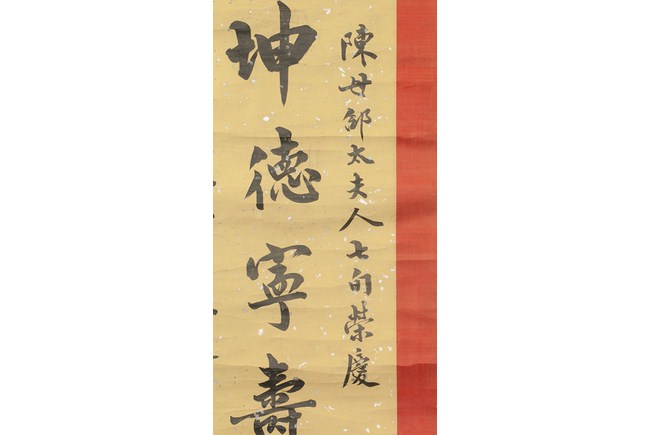 陳母邵太夫人七旬榮慶
坤德寧壽